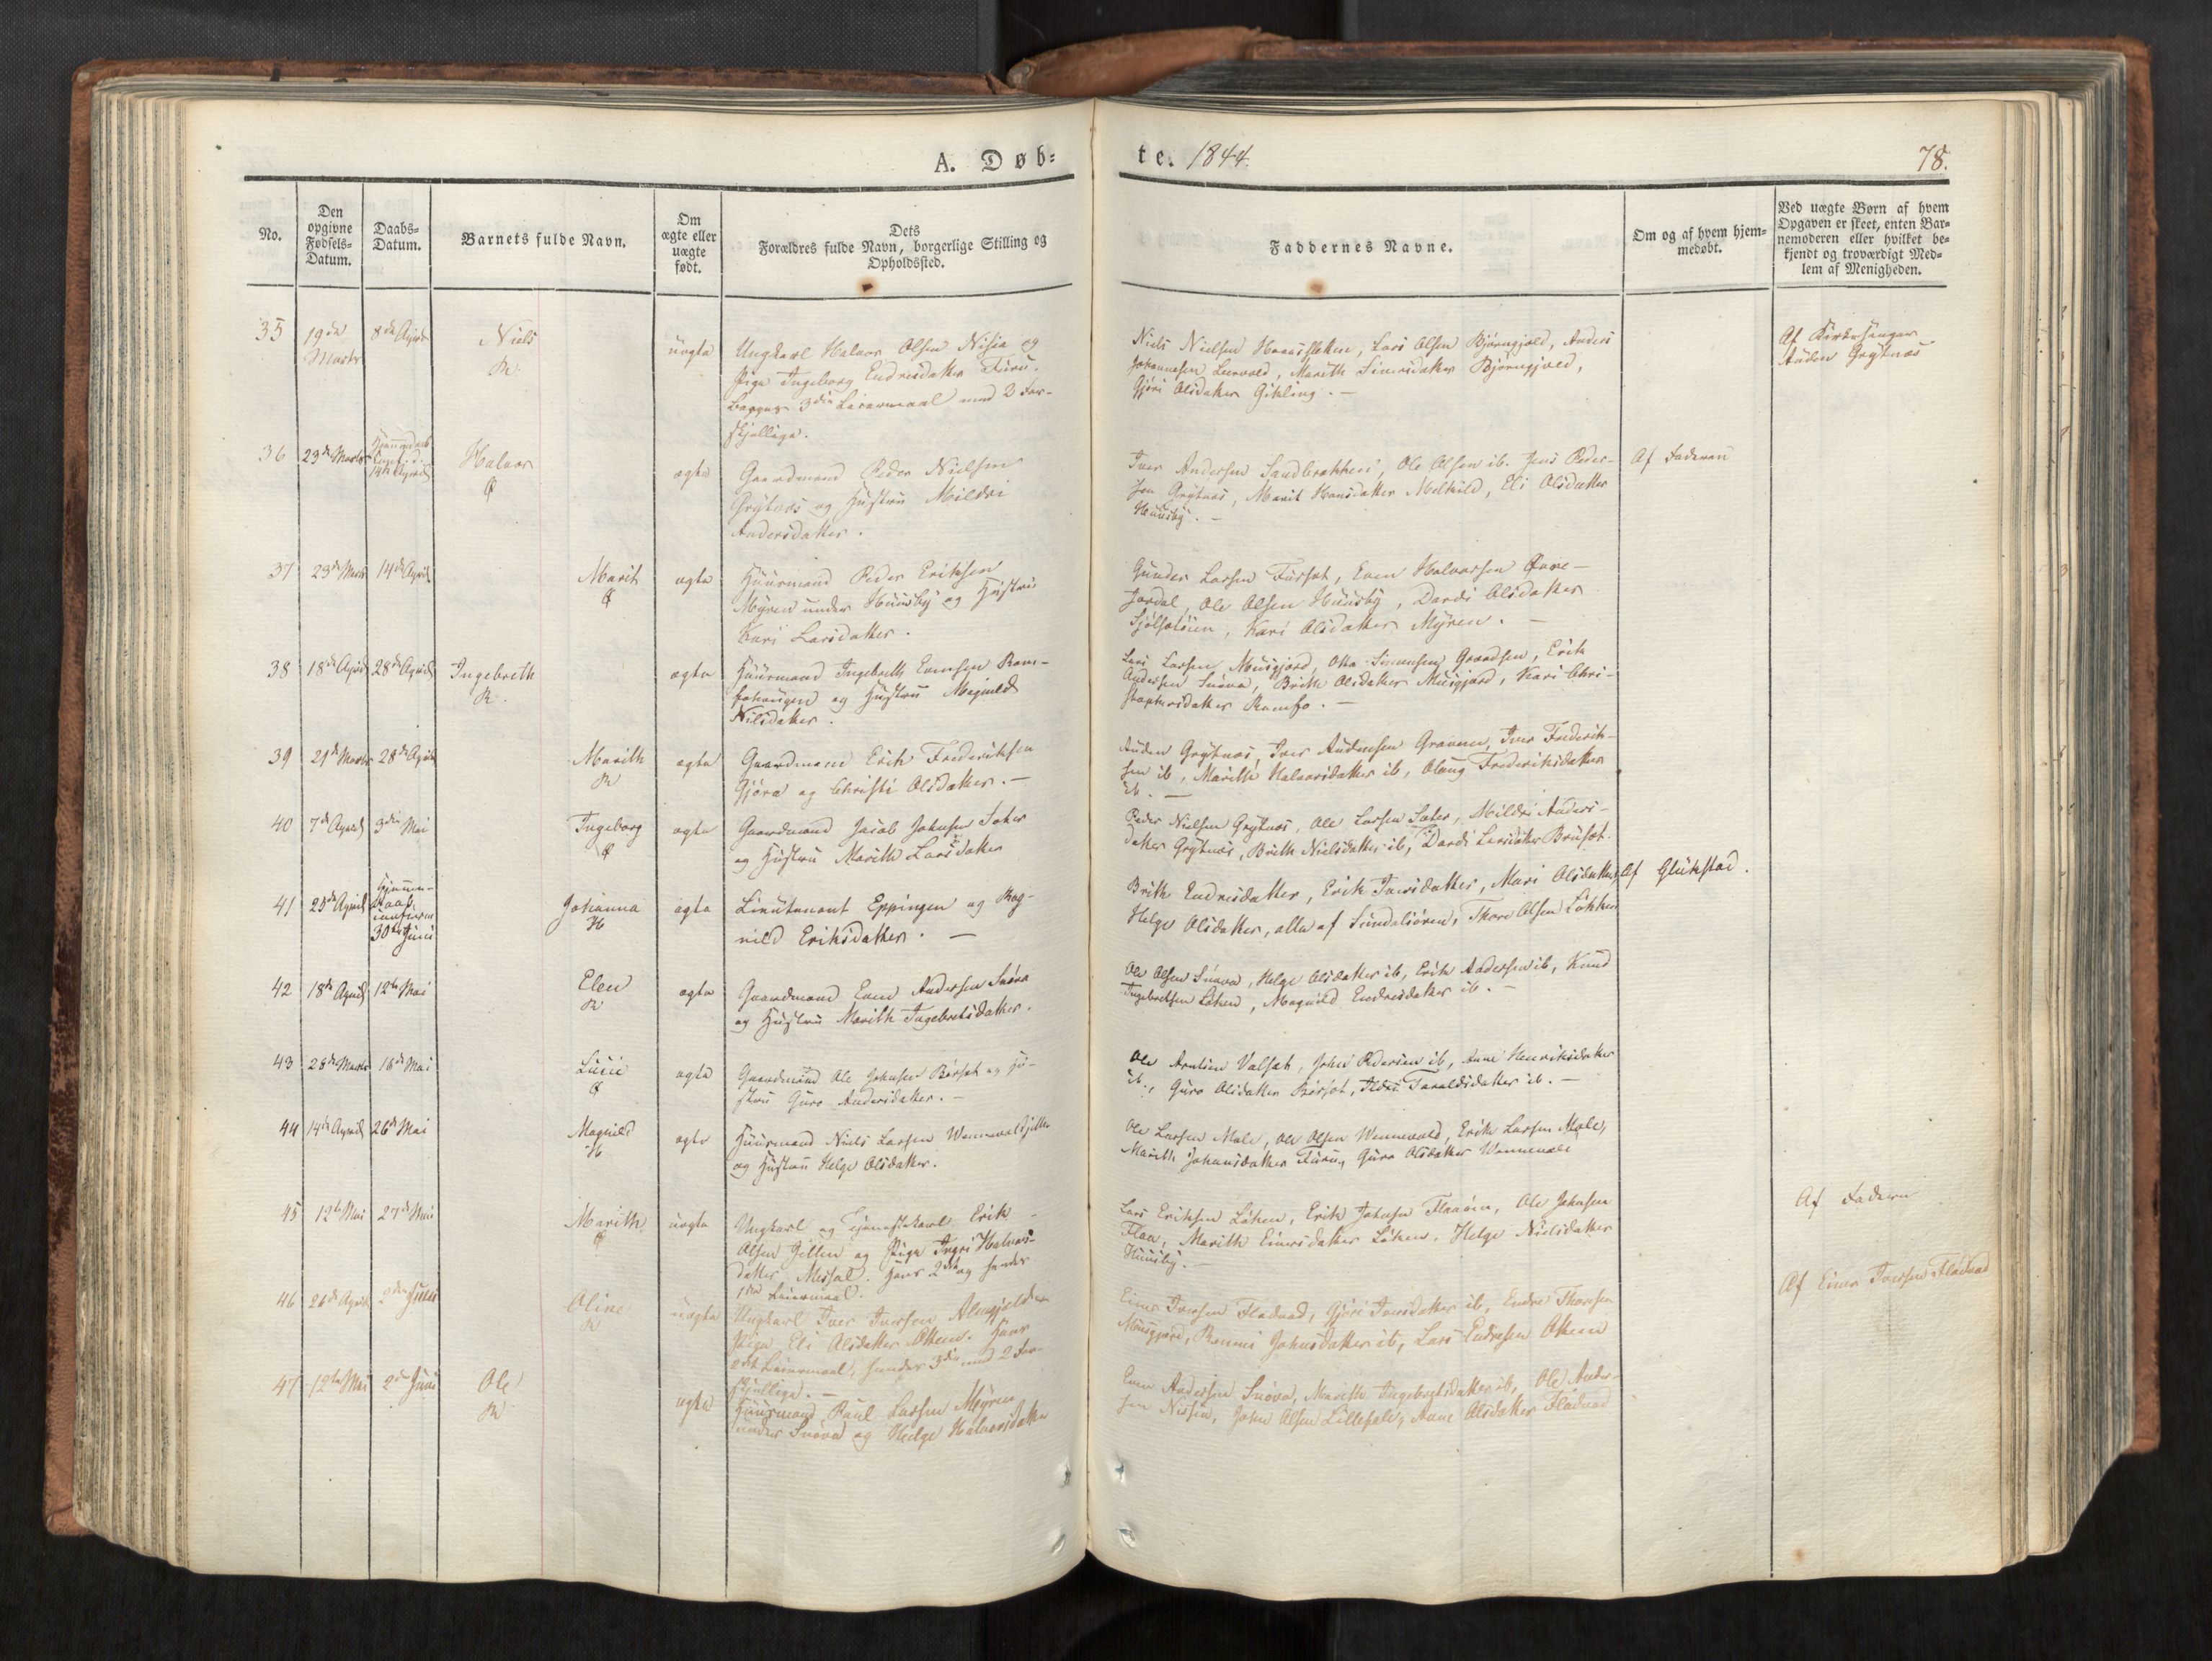 A. Døb=
te. 1844.
78.
No.
Den
opgivne
Fødsels=
Datum.
Daabs=
Datum.
Barnets fulde Navn.
Om
ægte eller
uægte
født.
Dets
Forældres fulde Navn, borgerlige Stilling og
Opholdssted.
Faddernes Navne.
Om og af hvem hjem=
medøbt.
Ved uægte Børn af hvem
Opgaven er skeet, enten Bar=
nemoderen eller hvilket be=
kjendt og troværdigt Med=
lem af Menigheden.
35
19de
Marts
8de April
Niels
R.
uægte
Ungkarl Halvor Olsen Nisja og
Pige Ingeborg Endresdatter Furu.
Begges 3die Leiermaal med 2 For-
skjellige.
Niels Nielsen, Lars Olsen Bjørngjeld, Anders
Johannesen Leervold, Marith Einersdatter Bjørngjeld,
Gjøri Olsdatter Gikling. —
Af Kirkesanger
Auden Grytnæs
36
23de Marts
14de April
Halvor
Ø
ægte
Gaardmand Peder Nielsen
Grytnæs og Hustru Mildri
Andersdatter.
Iver Andersen Sandbrekken, Ole Olsen ib. Jens Peder-
sen Grytnæs, Marit Hansdatter Melkild, Eli Olsdatter
Huusby. —
Af Faderen
37
23de Marts
14de April
Marit
Ø
ægte
Huusmand Peder Eriksen
Myren under Huusby og Hustru
Kari Larsdatter.
Gunder Larsen Furset, Even Halvorsen Øvre-
Jordal, Ole Olsen Huusby, Dordi Olsdatter
Kari Olsdatter Myren. —
38
18de April
28de April
Ingebreth
R.
ægte
Huusmand Ingebreth Evensen Ram-
og Hustru Magnild
Nilsdatter.
Lars Larsen Musgjerd, Otto Simensen Grædsen, Erik
Andersen Snøva, Brith Olsdatter Musgjerd, Kari Chri-
stophersdatter Ramsø. —
39
21de Marts
28de April
Marith
R
ægte
Gaardmand Erik Frederiksen
Gjøra og Christi Olsdatter. —
Auden Grytnæs, Iver Audensen Gravem, Iver Frederik-
sen ib, Marith Halvorsdatter ib, Olaug Frederiksdatter
ib. —
40
7de April
3die Mai
Ingeborg
Ø
ægte
Gaardmand Jacob Johnsen Sæter
og Hustru Marith Larsdatter
Peder Nielsen Grytnæs, Ole Larsen Sæter, Mildri Anders-
datter Grytnæs, Brith Nielsdatter ib, Dordi Larsdatter Brusæt.
41
25de April
Hjemme-
daab
confirm
30te Juni
Johanna
H
ægte
Lieutenant Eppingen og Rag-
nild Eriksdatter. —
Brith Endresdatter, Erik Iversdatter, Mari Olsdatter,
Helge Olsdatter, alle af Sundalsøren, Thore Olsen Løkken
Af Glükstad.
42
18de April
12te Mai
Elen
R
ægte
Gaardmand Even Andersen Snøva
og Hustru Marith Ingebretsdatter.
Ole Olsen Snøva, Helge Olsdatter ib, Erik Andersen ib, Knud
Ingebretsen Løken, Magnild Endresdatter ib. —
43
28de Marts
16de Mai
Lusie
Ø
ægte
Gaardmand Ole Johnsen Børset og Hu-
stru Guro Andersdatter. —
Ole Arntsen Valset, John Pedersen ib, Anne Henriksdatter
ib., Guro Olsdatter Børset, Ildri Taraldsdatter ib. —
44
14de April
26de Mai
Magnild
H
ægte
Huusmand Niels Larsen
og Hustru Helge Olsdatter.
Ole Larsen Mæle, Ole Olsen Wennevold, Erik Larsen Mæle,
Marith Johansdatter Furu, Guro Olsdatter Wennevold
45
12te Mai
27de Mai
Marith
Ø
uægte
Ungkarl og Tjenestekarl Erik
Olsen Jillen og Pige Ingri Halvors-
datter Messel. Hans 2det og hendes
1ste Leiermaal.
Lars Eriksen Løken, Erik Johnsen Flaaøien, Ole Johnsen
Flaa, Marith Einersdatter Løken, Helge Nielsdatter
Huusby. —
Af Faderen
46
26de April
2den Juni
Oline
R
uægte
Ungkarl Iver Iversen Almgjeld og
Pige Eli Olsdatter Ottem. Hans
2det Leiermaal, hendes 3die med 2 For-
skjellige. —
Einer Iversen Fladvad, Gjøri Iversdatter ib, Endre Thoresen
Musgjerd, Rønnei Johnsdatter ib, Lars Endresen Ottem
Af Einer Iversen Fladvad
47
12te Mai
2den Juni
Ole
R
ægte
Huusmand Poul Larsen Myren
under Snøva og Helge Halvorsdatter
Even Andersen Snøva, Marith Ingebretsdatter ib, Ole Ander-
sen Nisjen, John Olsen Lillesale, Anne Olsdatter Fladvad